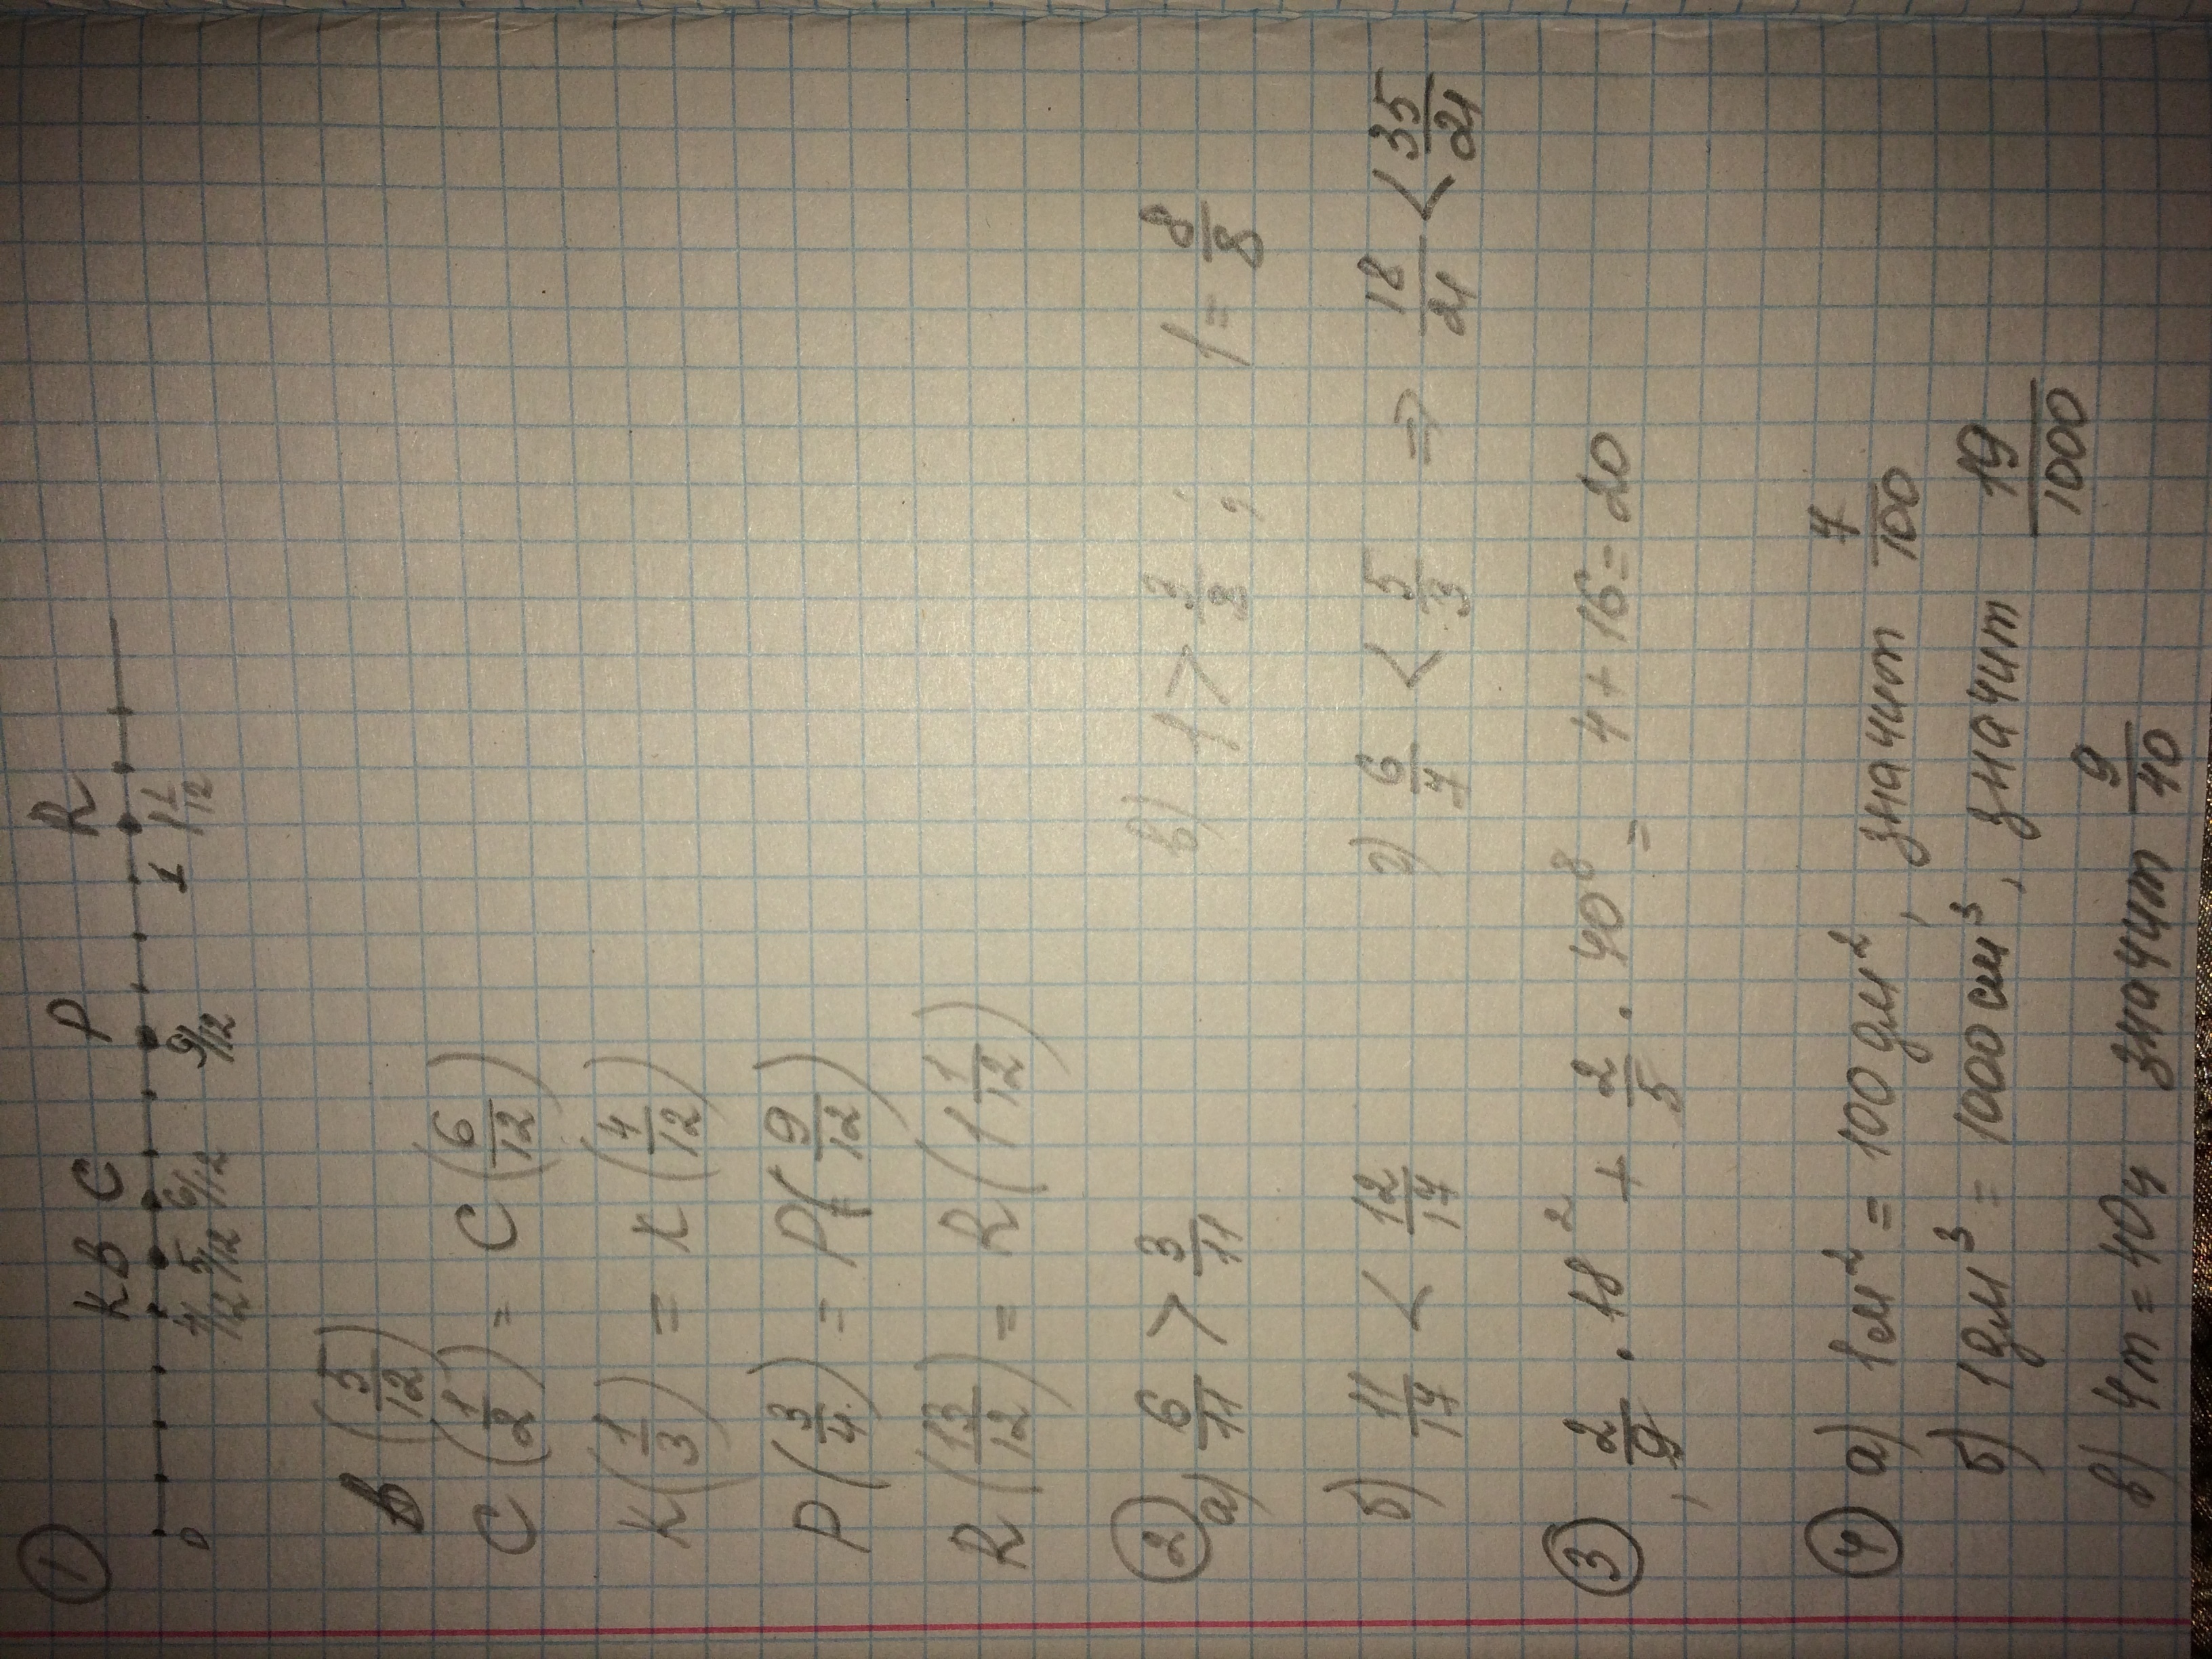 ① K B C P R
0 4/12 5/12 6/12 9/12 1 1 1/12
B (5/12)
C (1/2) = C (6/12)
K (1/3) = K (4/12)
P (3/4) = P (9/12)
R (13/12) = R (1 1/12)
② а) 6/11 > 3/11 в) 1 > 3/8 ; 1 = 8/8
б) 11/17 < 12/17 г) 6/7 < 5/3 ⇒ 18/21 < 35/21
③ 2/9 · 18² + 2/5 · 40⁸ = 4 + 16 = 20
④ а) 1м² = 100 дм², значит 7/100
б) 1дм³ = 1000 см³, значит 19/1000
в) 4т = 40ц значит 9/40